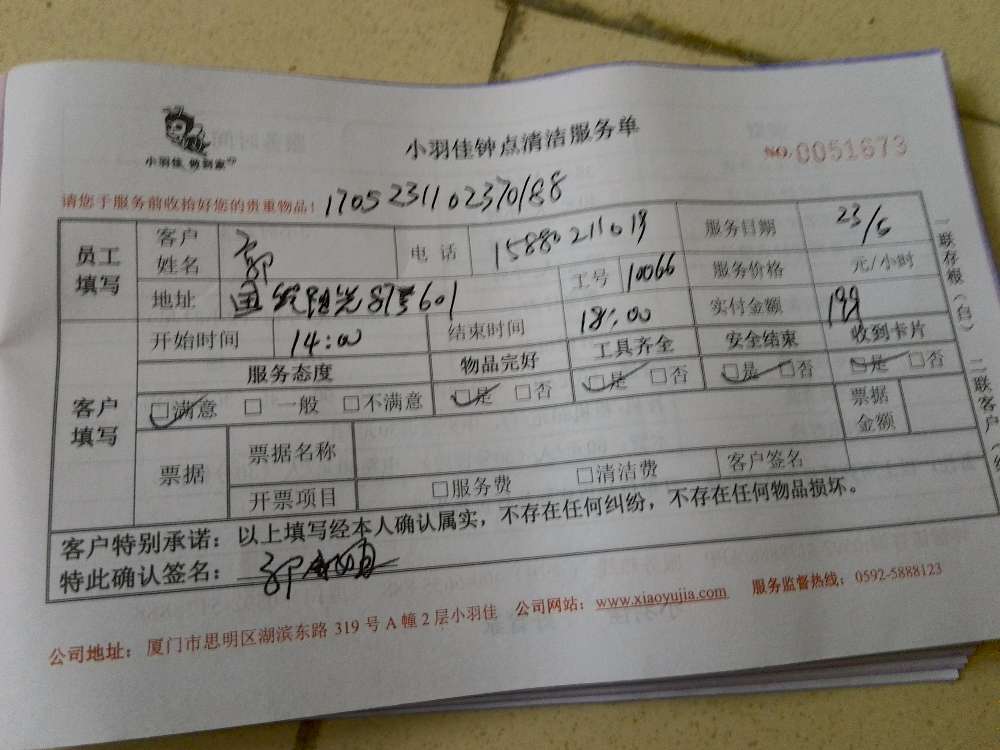 小羽佳 做到家
小羽佳钟点清洁服务单
NO. 0051673
请您于服务前收拾好您的贵重物品! 1705231102370188
员工填写 客户姓名 郭 电话 服务日期 23/5
地址 87号601 工号 10066 服务价格 元/小时
开始时间 14:00 结束时间 18:00 实付金额 199
客户填写 服务态度 物品完好 工具齐全 安全结束 收到卡片
□满意 □一般 □不满意 □是 □否 □是 □否 □是 □否 □是 □否
票据 票据名称 票据金额
开票项目 □服务费 □清洁费 客户签名
客户特别承诺：以上填写经本人确认属实，不存在任何纠纷，不存在任何物品损坏。
特此确认签名： 郭
公司地址：厦门市思明区湖滨东路 319 号 A 幢 2 层小羽佳 公司网站：www.xiaoyujia.com 服务监督热线：0592-5888123
一联存根（白） 二联客户